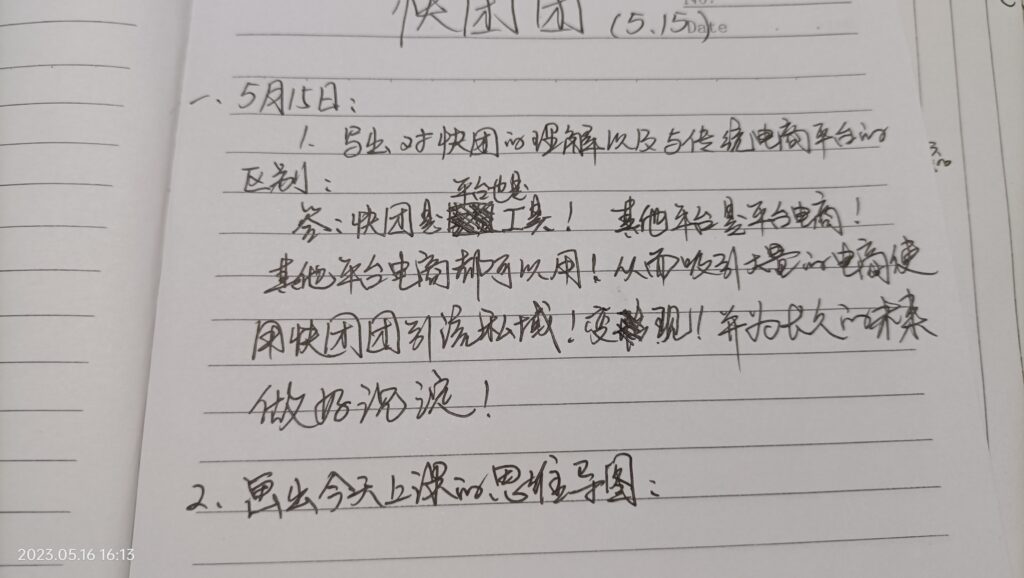 快团团 (5.15)
No.
Date
一、5月15日：
1. 写出对快团的理解以及与传统电商平台的
区别：
平台也是
答：快团是工具！ 其他平台是平台电商！
其他平台电商都可以用！从而吸引大量的电商使
用快团团引流私域！变现!! 并为长久的未来
做好沉淀！
2、画出今天上课的思维导图：
2023.05.16 16:13